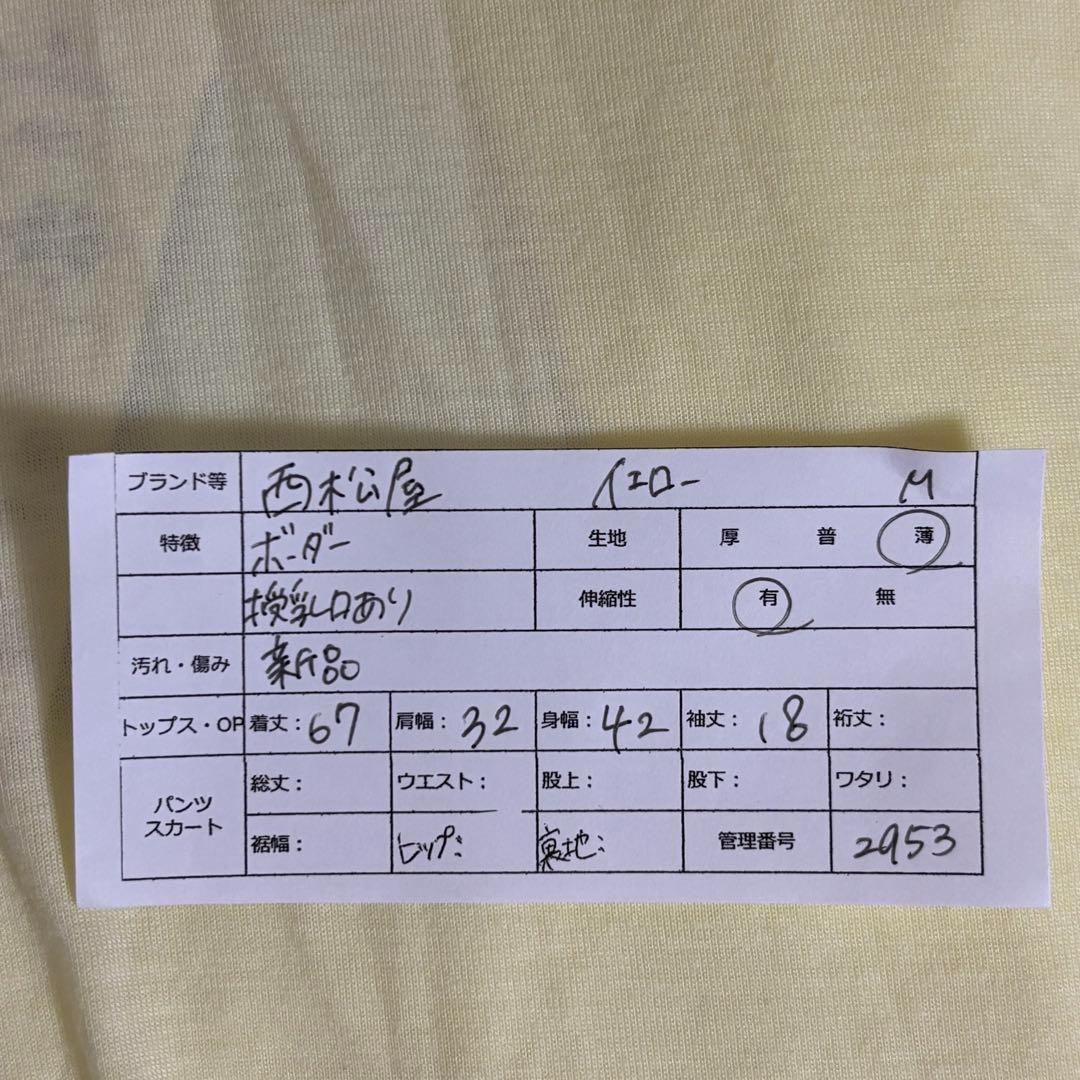 ブランド等 西松屋 イエロー M
特徴 ボーダー 生地 厚 普 薄
授乳口あり 伸縮性 有 無
汚れ・傷み 新品
トップス・OP 着丈：67 肩幅：32 身幅：42 袖丈：18 裄丈：
パンツ スカート 総丈： ウエスト： 股上： 股下： ワタリ：
裾幅： ヒップ： 裏地： 管理番号 2953